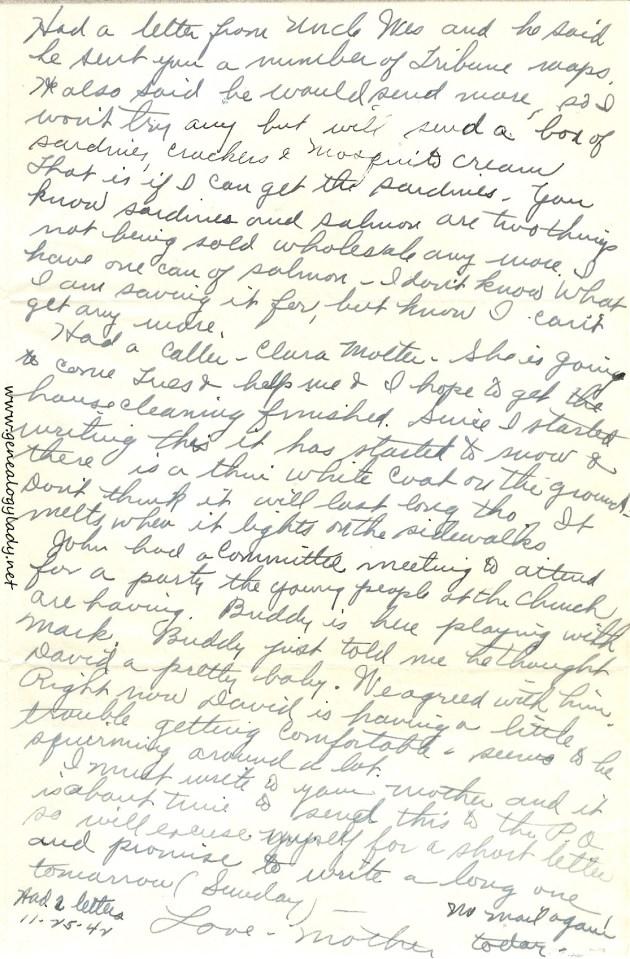 Had a letter from Uncle Wes and he said
he sent you a number of Tribune maps.
He also said he would send more, so I
won't try any but will send a box of
sardines, crackers & mosquito cream
That is if I can get the sardines. You
know sardines and salmon are two things
not being sold wholesale any more. I
have one can of salmon - I don't know what
I am saving it for, but know I can't
get any more.
Had a caller - Clara Molter - She is going
to come Tues & help me & I hope to get the
house cleaning finished. Since I started
writing this it has started to snow &
there is a thin white coat on the ground -
Don't think it will last long tho. It
melts when it lights on the sidewalks
John had a committee meeting to attend
for a party the young people at the church
are having. Buddy is here playing with
Mark. Buddy just told me he thought
David a pretty baby. We agreed with him.
Right now David is having a little
trouble getting comfortable - seems to be
squirming around a lot.
I must write to your mother and it
is about time to send this to the P.O.
so will excuse myself for a short letter
and promise to write a long one
tomorrow (Sunday) -
Had 2 letters
11-25-42
Love - Mother
No mail again
today -
www.genealogylady.net